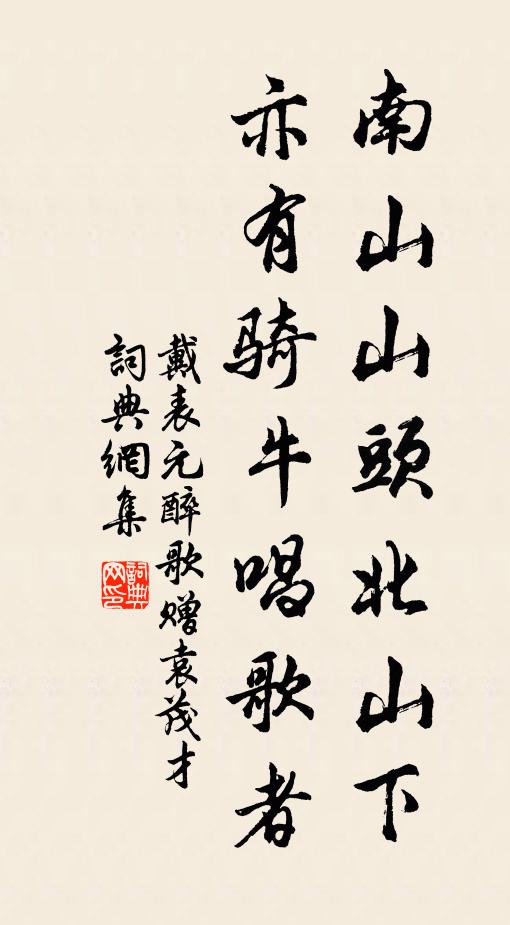 南山山頭北山下
亦有騎牛唱歌者
戴表元醉歌贈袁茂才
詞典網集
詞典
网印